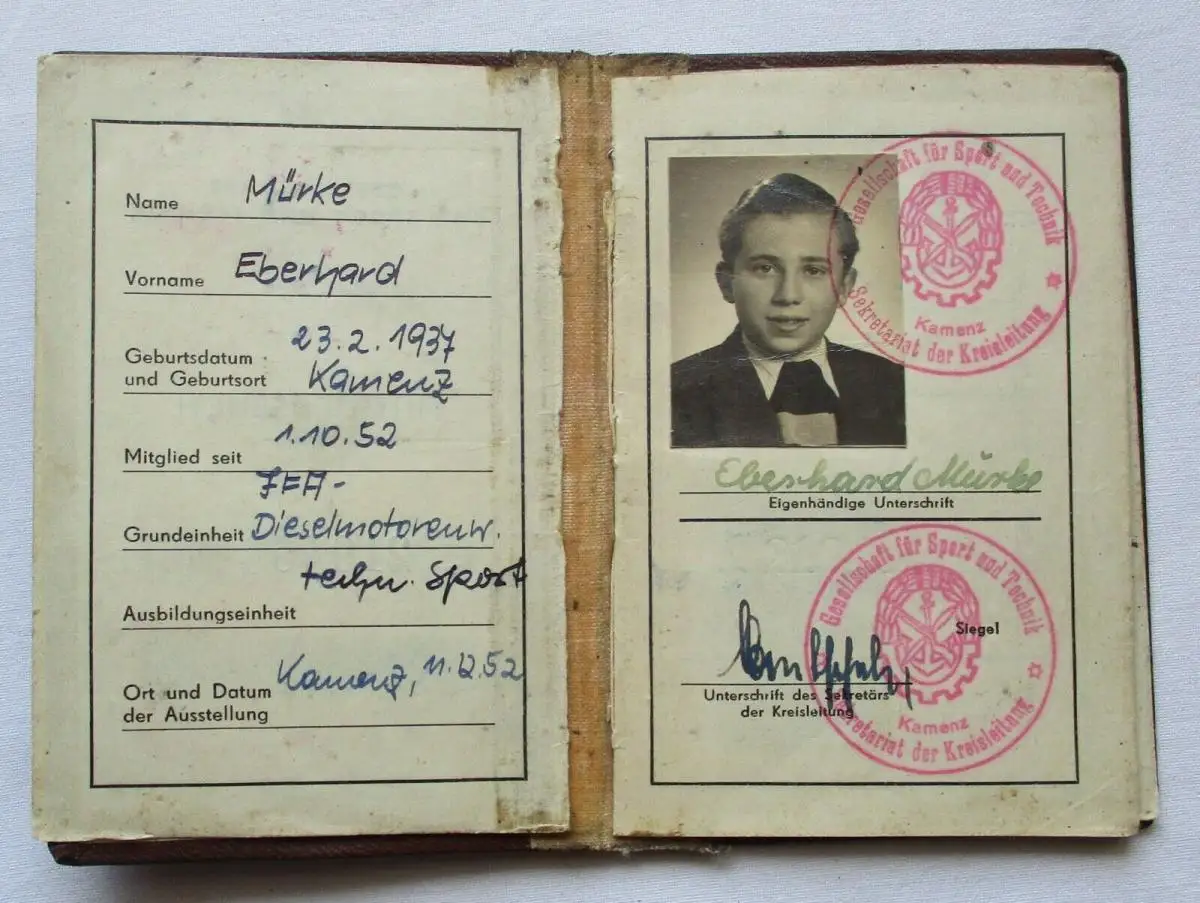 Name Mürke
Vorname Eberhard
23.2.1937
Geburtsdatum
und Geburtsort Kamenz
1.10.52
Mitglied seit
Grundeinheit Dieselmotorenw.
techn. Sport
Ausbildungseinheit
Ort und Datum Kamenz, 11.12.52
der Ausstellung
Gesellschaft für Sport und Technik
Kamenz
Sekretariat der Kreisleitung
Eberhard Mürke
Eigenhändige Unterschrift
Gesellschaft für Sport und Technik
Siegel
Unterschrift des Sekretärs
der Kreisleitung
Kamenz
Sekretariat der Kreisleitung